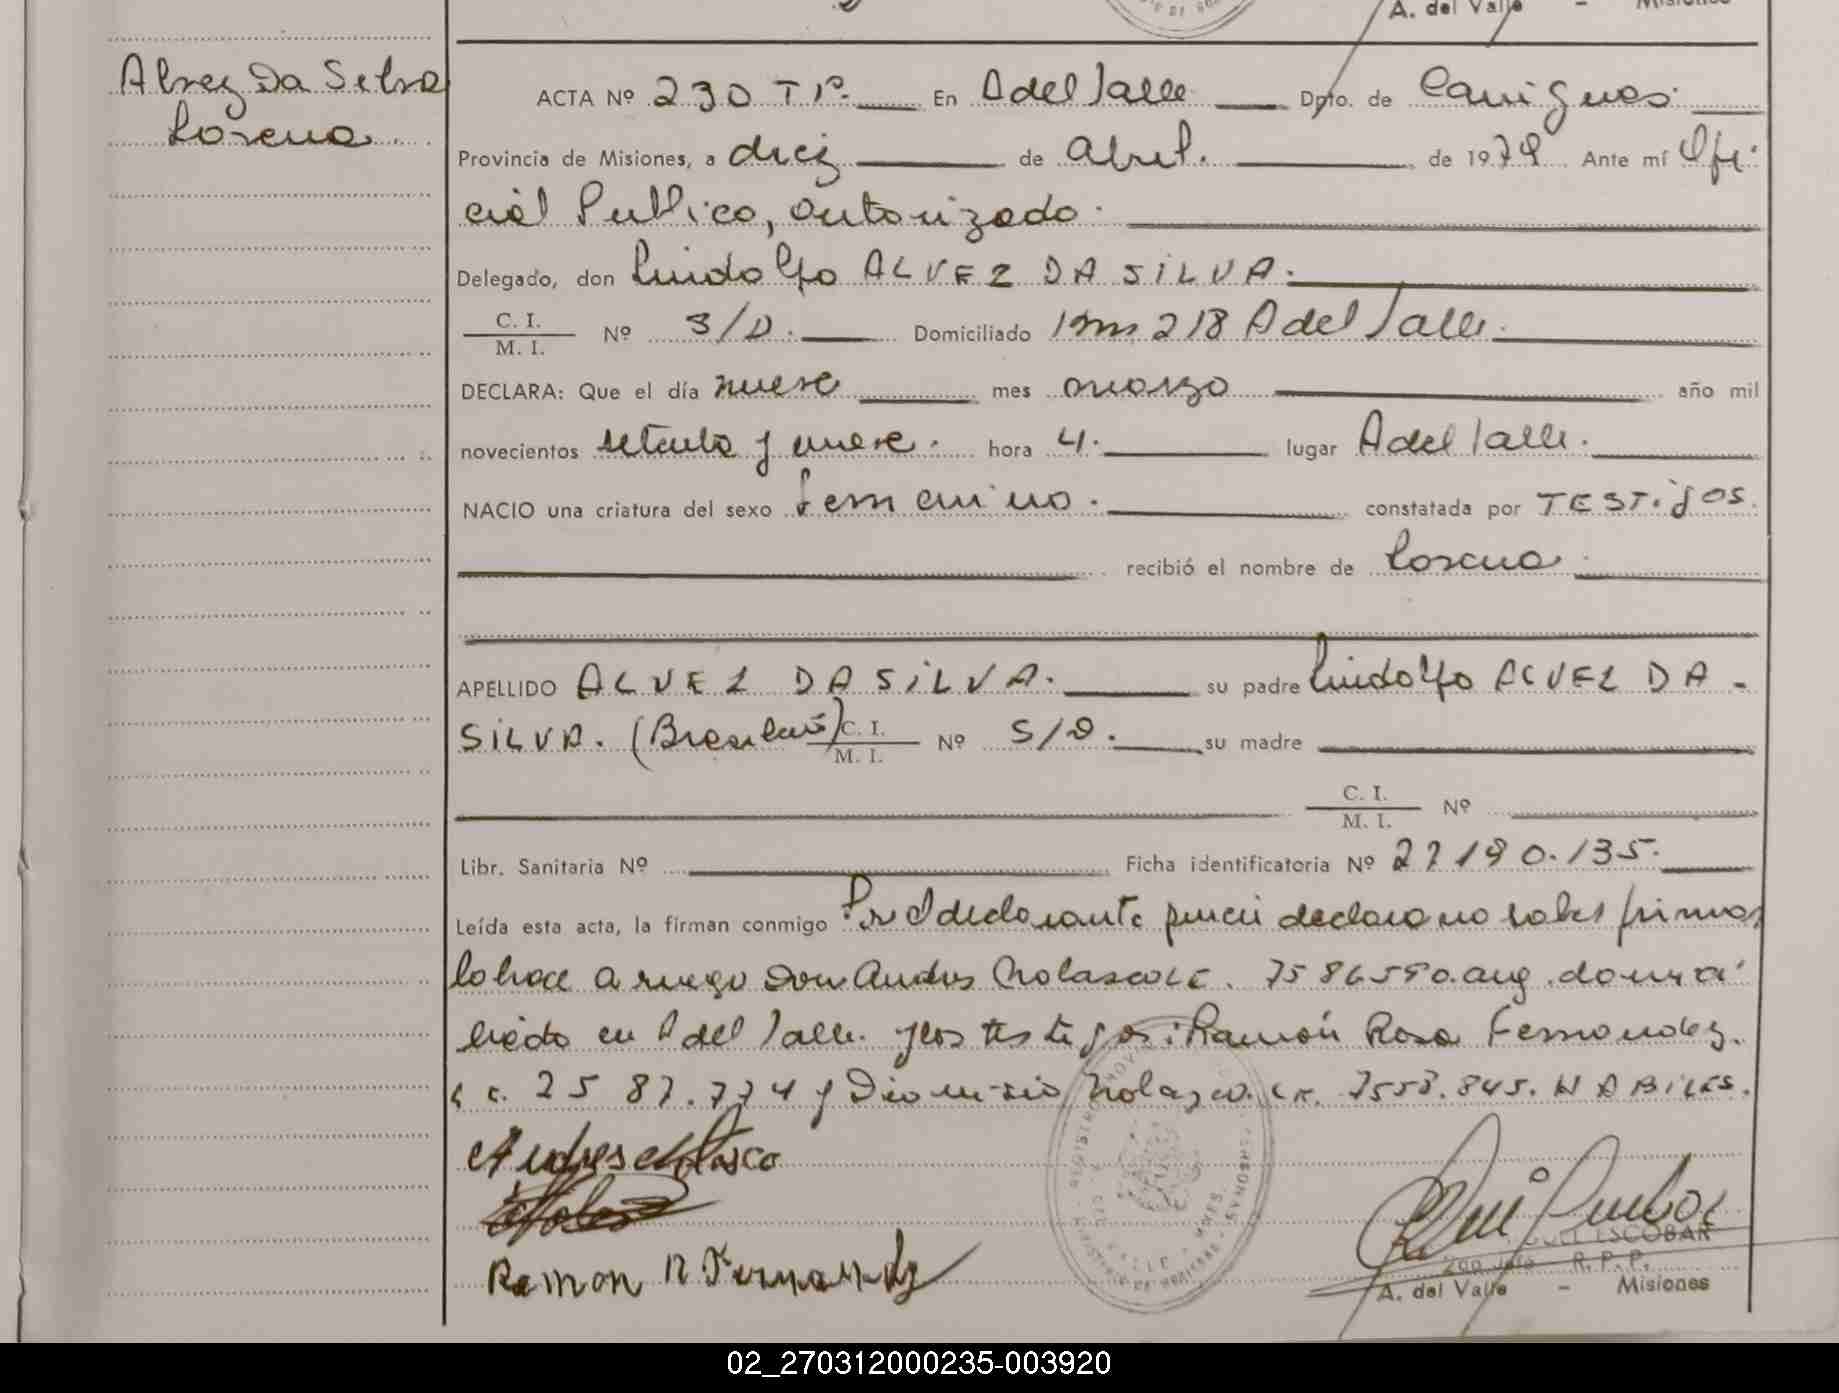 A. del Valle - Misiones
Alvez Da Silva
Lorena
ACTA Nº 230 Tº En A del Valle Dpto. de Cainguas
Provincia de Misiones, a diez de abril. de 1979 Ante mí Ofi
cial Publico, autorizado.
Delegado, don Lindolfo ALVEZ DA SILVA.
C. I.
M. I. Nº S/D. Domiciliado Km 218 A del Valle.
DECLARA: Que el día nueve mes marzo año mil
novecientos setenta y nueve. hora 4. lugar A del Valle.
NACIO una criatura del sexo femenino. constatada por TESTigos.
recibió el nombre de Lorena
APELLIDO ALVEZ DA SILVA. su padre Lindolfo ALVEZ DA
SILVA. (Brasileño) C. I.
M. I. Nº S/D. su madre
C. I.
M. I. Nº
Libr. Sanitaria Nº Ficha identificatoria Nº 27190.135.
Leída esta acta, la firman conmigo Por el declarante quien declara no saber firmar
lo hace a ruego Don Andres Nolasco 7586590. arg. domici
liado en A del Valle. y los testigos: Ramón Rosa Fernandez.
2587.774 y Dionisio Nolazco. 7558.845. HABILES.
Andres Nolasco
Ramon R Fernandez
ESCOBAR
R. P. P.
A. del Valle - Misiones
02_270312000235-003920